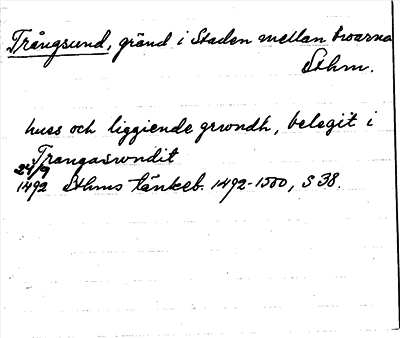 Trångsund, gränd i Staden mellan broarna
Sthm.
huss och liggiende grwndh, belegit i
Trangaswndit
24/9
1492 Sthms tänkeb. 1492-1500, S 38.